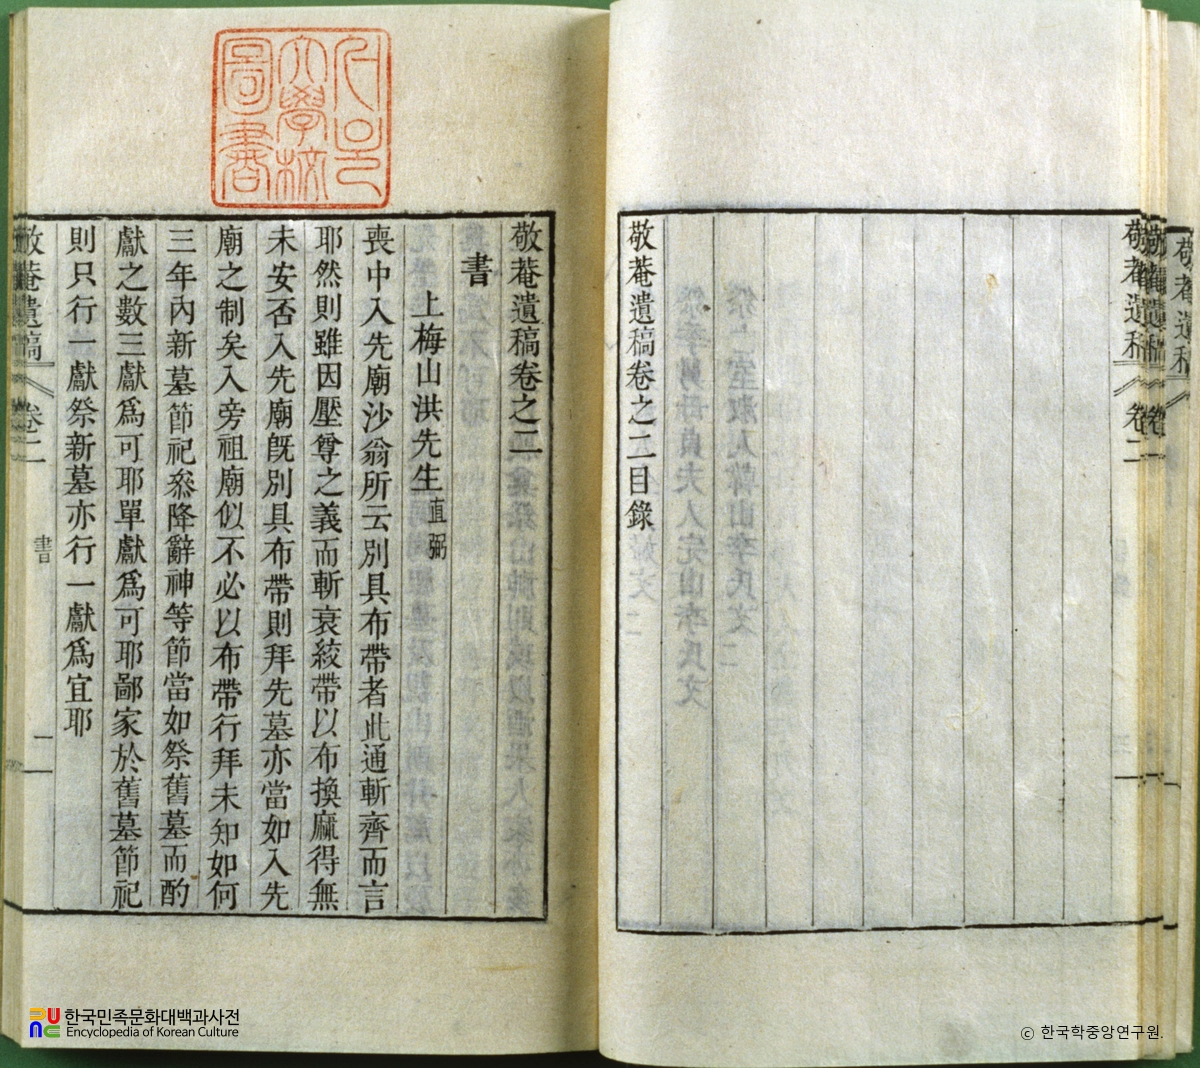 敬菴遺稿卷之二目錄
서울
大學校
圖書
敬菴遺稿卷之二
書
上梅山洪先生直弼
喪中入先廟沙翁所云別具布帶者此通斬齊而言
耶然則雖因壓尊之義而斬衰絞帶以布換麻得無
未安否入先廟旣別具布帶則拜先墓亦當如入先
廟之制矣入旁祖廟似不必以布帶行拜未知如何
三年內新墓節祀叅降辭神等節當如祭舊墓而酌
獻之數三獻爲可耶單獻爲可耶鄙家於舊墓節祀
則只行一獻祭新墓亦行一獻爲宜耶
敬菴遺稿 卷二 書 一
한국민족문화대백과사전
Encyclopedia of Korean Culture
ⓒ 한국학중앙연구원.